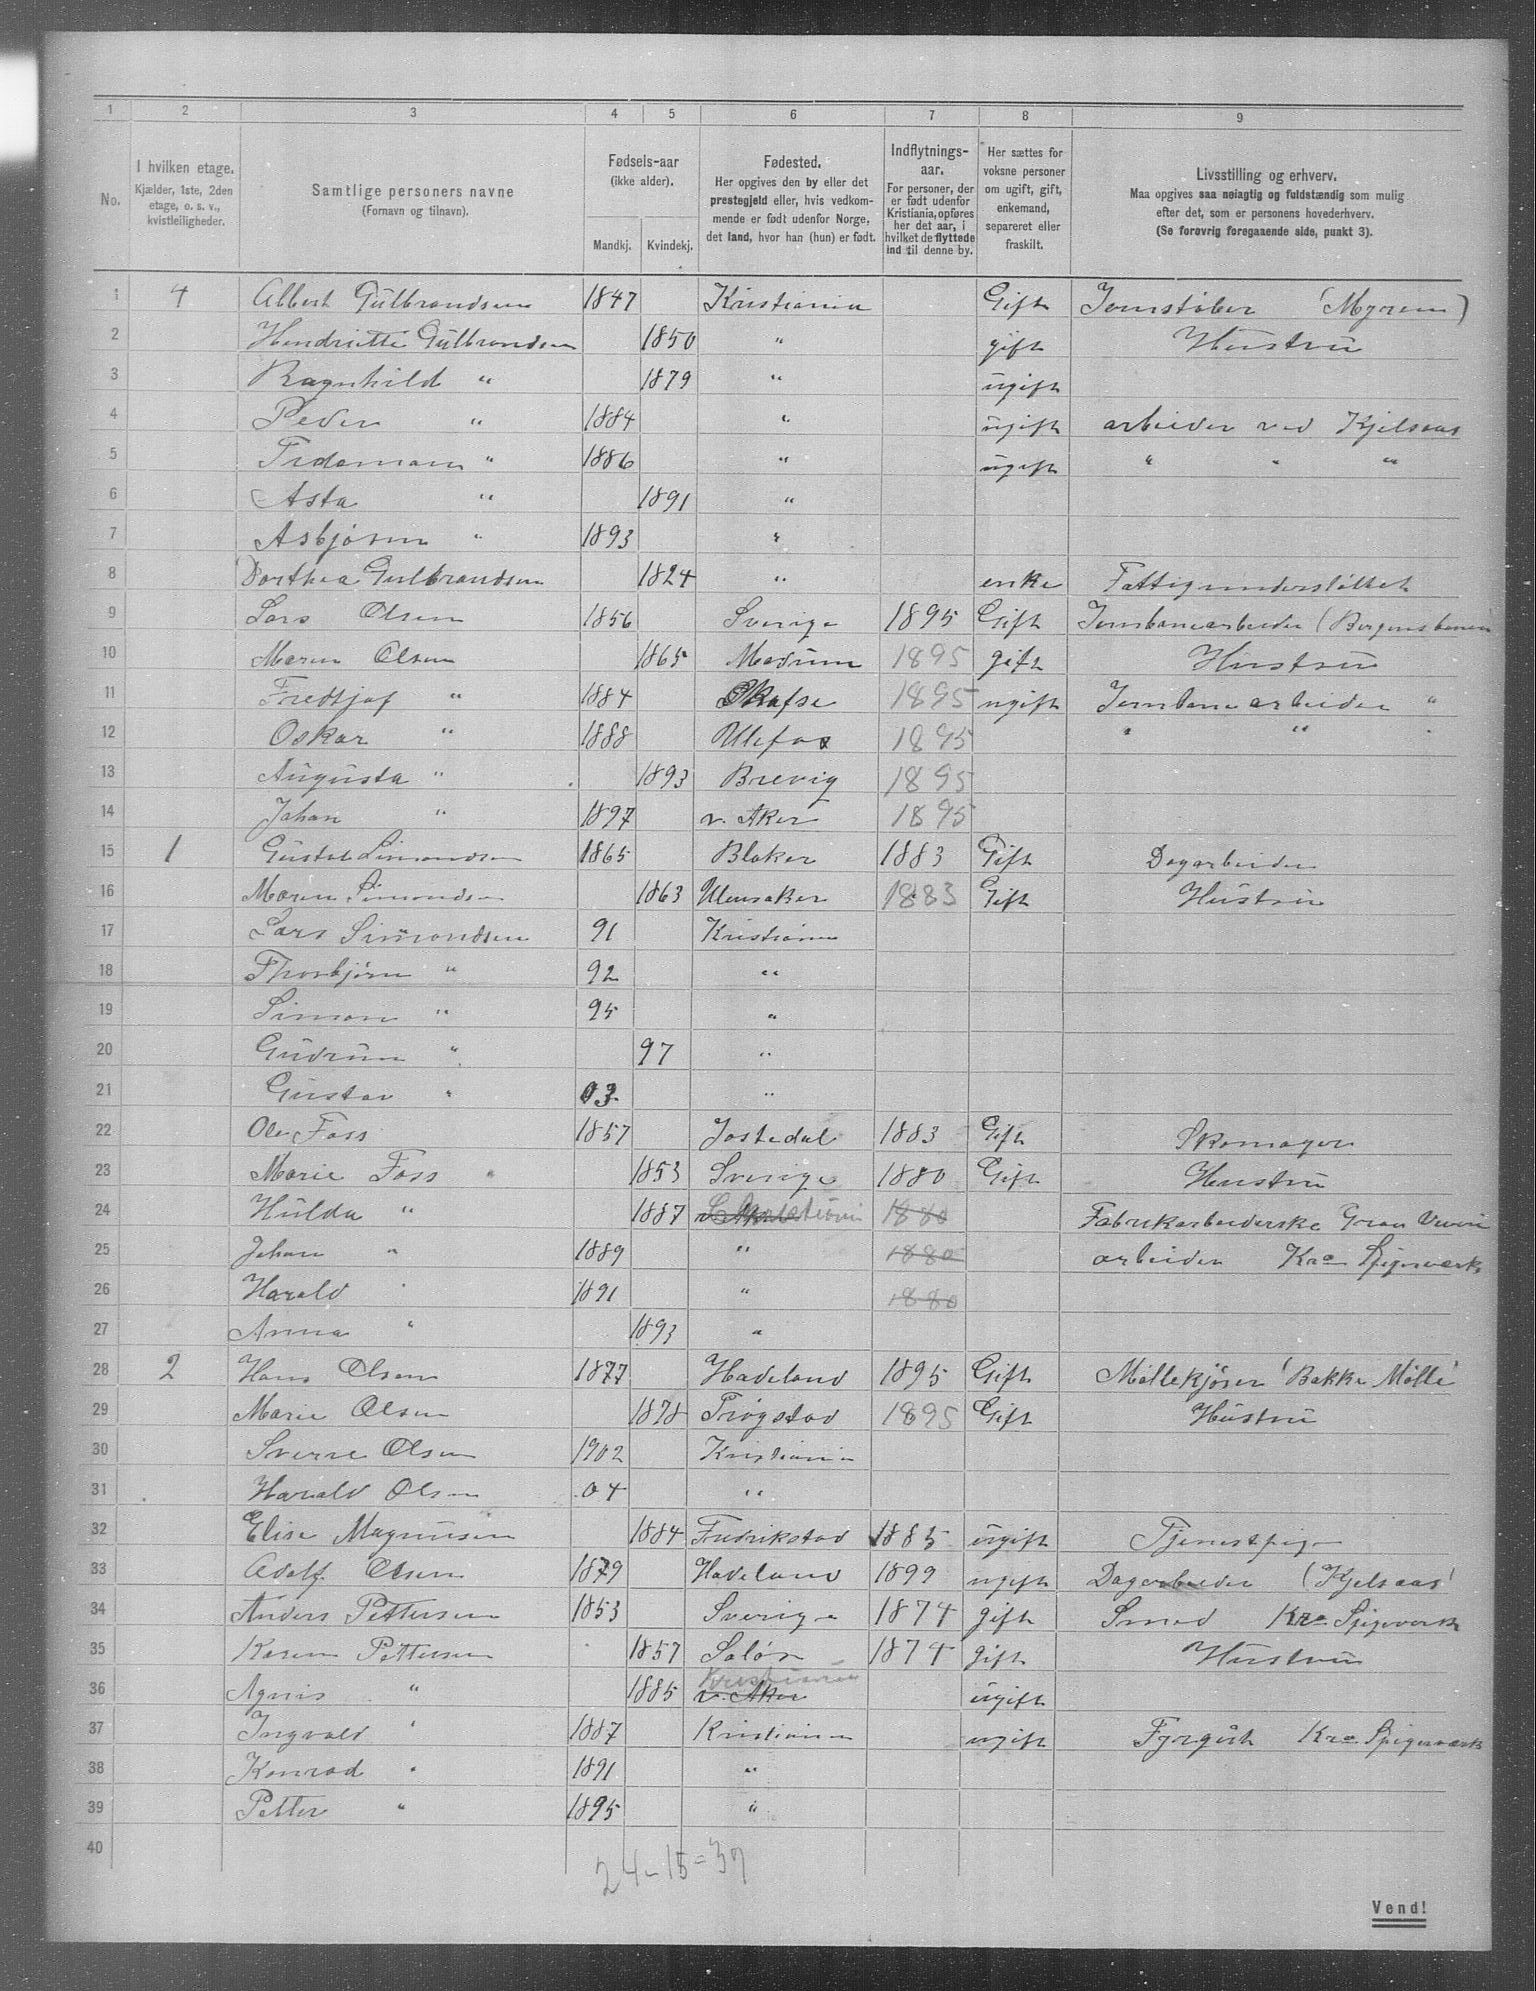 1 2 3 4 5 6 7 8 9
No. I hvilken etage. Kjælder, 1ste, 2den etage, o. s. v., kvistleiligheder. Samtlige personers navne (Fornavn og tilnavn). Fødsels-aar (ikke alder). Mandkj. Kvindekj. Fødested. Her opgives den by eller det prestegjeld eller, hvis vedkommende er født udenfor Norge, det land, hvor han (hun) er født. Indflytningsaar. For personer, der er født udenfor Kristiania, opføres her det aar, i hvilket de flyttede ind til denne by. Her sættes for voksne personer om ugift, gift, enkemand, separeret eller fraskilt. Livsstilling og erhverv. Maa opgives saa nøiagtig og fuldstændig som mulig efter det, som er personens hovederhverv. (Se forøvrig foregaaende side, punkt 3).
1 4 Albert Gulbrandsen 1847 Kristiania Gift Jernstøber (Myren)
2 Hendriette Gulbrandsen 1850 " gift Hustru
3 Ragnhild " 1879 " ugift
4 Peder " 1884 " ugift arbeider ved Kjelsaas
5 Tidemann " 1886 " ugift " " "
6 Asta " 1891 "
7 Asbjørn " 1893 "
8 Dorthea Gulbrandsen 1824 " enke Fattigunderstøttet
9 Lars Olsen 1856 Sverige 1895 Gift Jernbanearbeider (Bergensbanen
10 Maren Olsen 1865 Modum 1895 gift Hustru
11 Fredtjof " 1884 1895 ugift Jernbanearbeider "
12 Oskar " 1888 Ulefos 1895 " " "
13 Augusta " 1893 Brevig 1895
14 Johan " 1897 v. Aker 1895
15 1 Gustav Simondsen 1865 Blaker 1883 Gift Dagarbeider
16 Maren Simondsen 1863 Ulensaker 1883 Gift Hustru
17 Lars Simondsen 91 Kristiania
18 Thorbjørn " 92 "
19 Simon " 95 "
20 Gudrun " 97 "
21 Gustav " 03 "
22 Ole Foss 1857 Jostedal 1883 Gift Skomager
23 Marie Foss 1853 Sverige 1880 Gift Hustru
24 Hulda " 1887 1880 Fabrikarbeiderske Graa
25 Johan " 1889 " 1880 arbeider Kra Spigerværk
26 Harald " 1891 " 1880
27 Anna " 1893 "
28 2 Hans Olsen 1877 Hadeland 1895 Gift Møllekjører (Bakke Mølle)
29 Marie Olsen 1878 Trøgstad 1895 Gift Hustru
30 Sverre Olsen 1902 Kristiania
31 Harald Olsen 04 "
32 Elise Magnusen 1884 Fredrikstad 1885 ugift Tjenestpige
33 Adolf Olsen 1879 Hadeland 1899 ugift Dagarbeider (Kjelsaas)
34 Anders Pettersen 1853 Sverige 1874 gift Smed Kra Spigerverk
35 Karen Pettersen 1857 Solør 1874 gift Hustru
36 Agnis " 1885 v. Aker Kristiania ugift
37 Ingvald " 1887 Kristiania ugift Fyrgut Kra Spigerværk
38 Konrad " 1891 "
39 Petter " 1895 "
40
24-15=39
Vend!